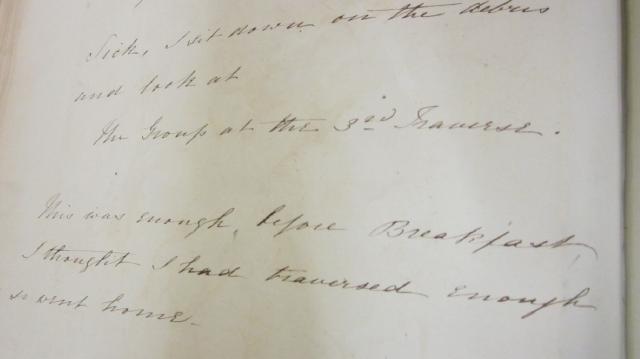 Sick, I sit down on the debris
and look at
The Group at the 3rd Traverse.
This was enough, before Breakfast,
I thought I had traversed enough
so went home.